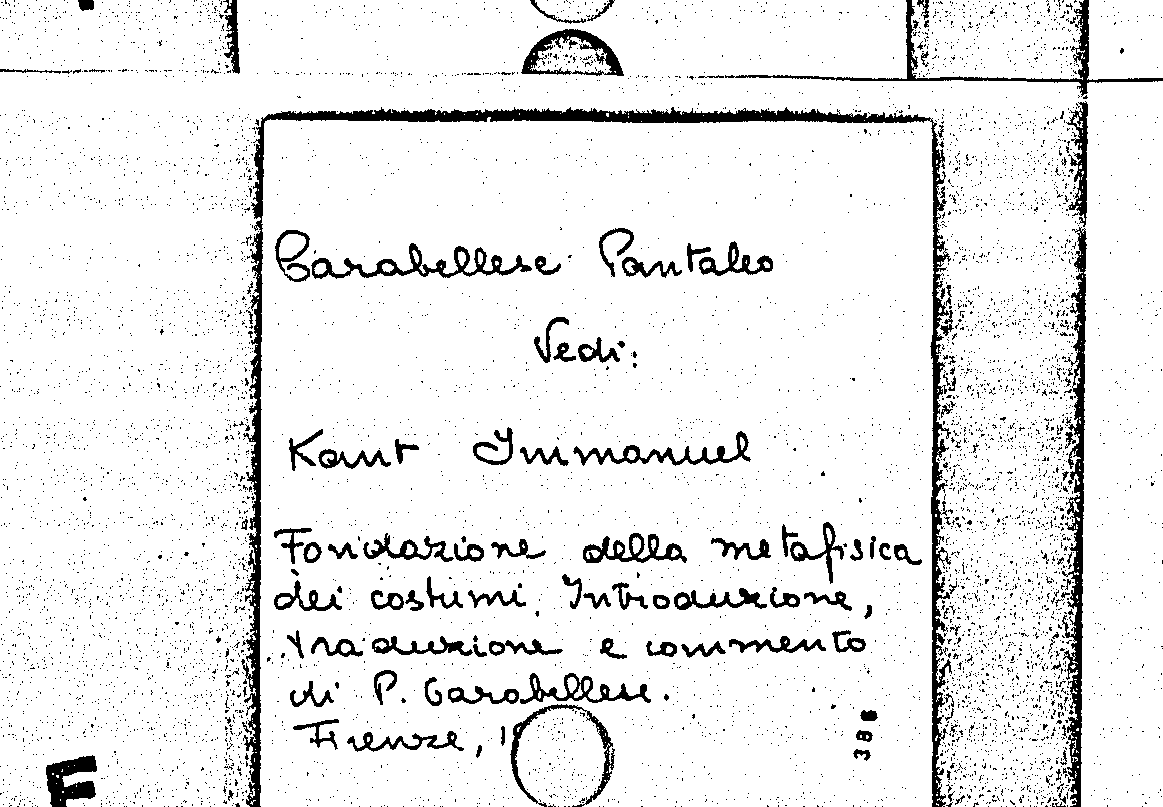 Carabellese Pantaleo
Vedi:
Kant Immanuel
Fondazione della metafisica
dei costumi. Introduzione,
traduzione e commento
di P. Carabellese.
Firenze, 19
388
E